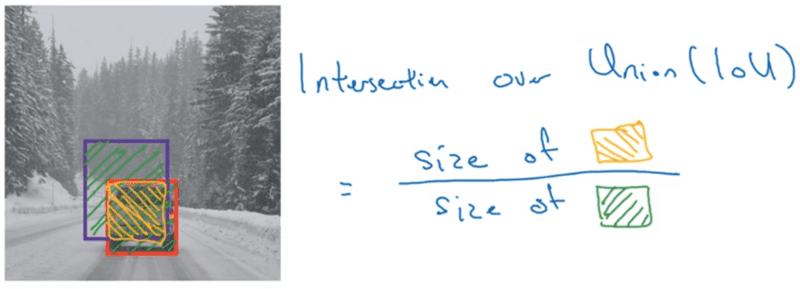 Intersection over Union (IoU)
size of
=
size of